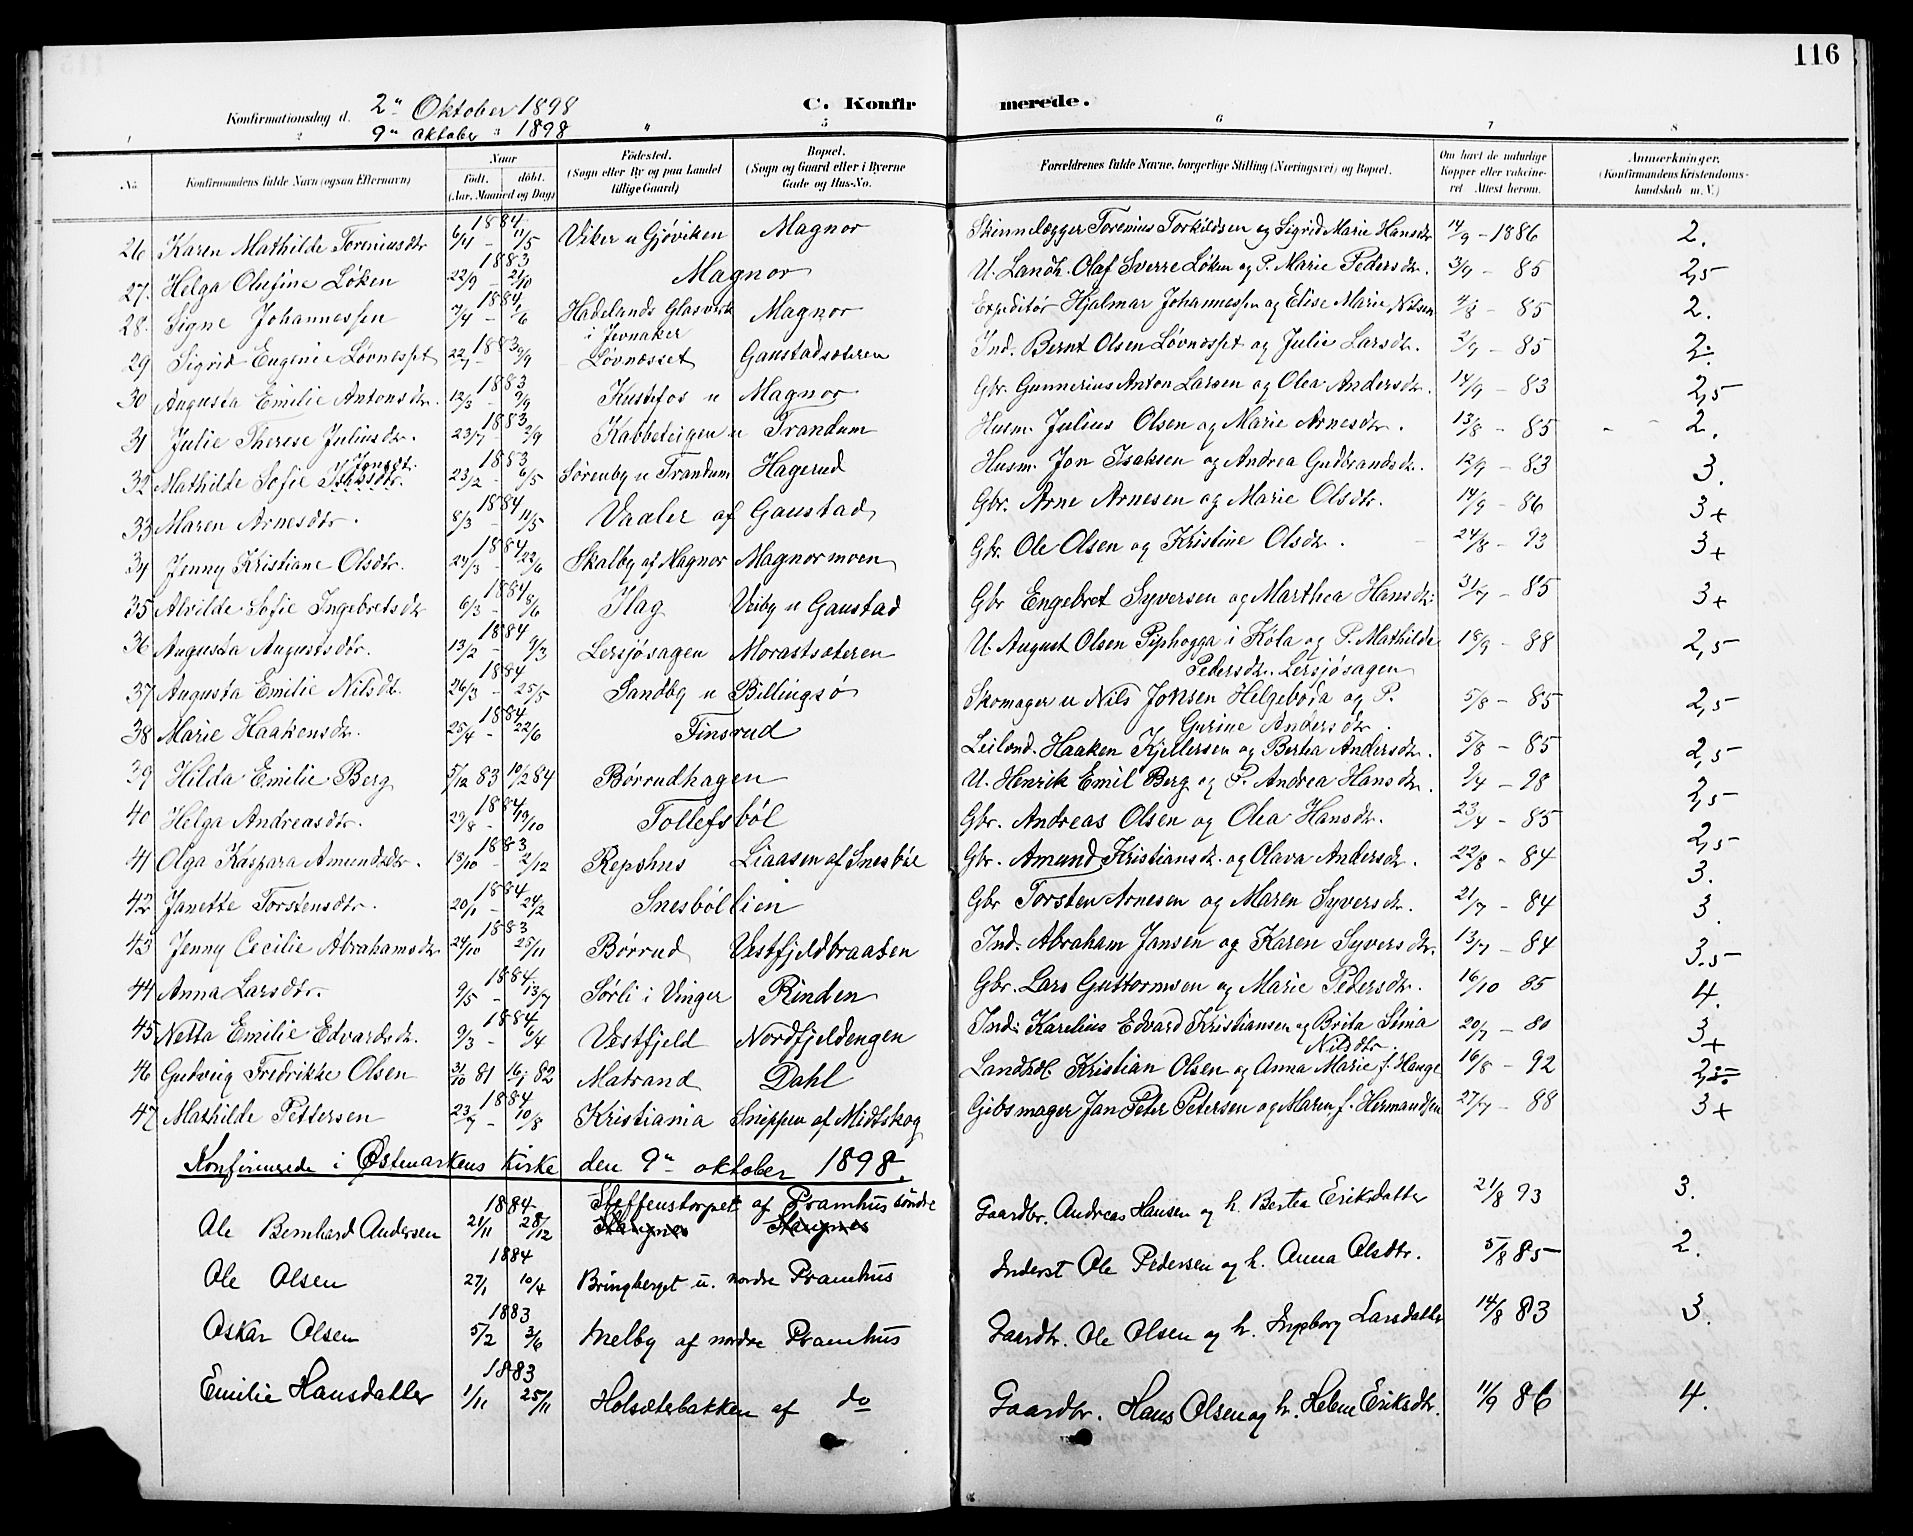 116
C. Konfirmerede.
Konfirmationsdag d. 2n Oktober 1898
9n oktober 1898
1 2 " 5 6 7 8
No. Konfirmandens fulde Navn (ogsaa Efternavn) Naar født. døbt. (Aar, Maaned og Dag) Fødested. (Sogn eller By og paa Landet tillige Gaard) Bopæl. (Sogn og Gaard eller i Byerne Gade og Hus-No. Forældrenes fulde Navne, borgerlige Stilling (Næringsvei) og Bopæl. Om havt de naturlige Kopper eller vaccineret. Attest herom. Anmærkninger. (Konfirmandens Kristendomskundskab m. V.)
26 Karen Mathilde Toreniusdtr 6/4 - 1884 11/5 Viker u Gjøviken Magnor Skinnelægger Torenius Torkildsen og Sigrid Marie Hansdtr 14/9 - 1886 2.
27. Helga Olufine Løken 22/9 - 1883 21/10 Magnor U. Landh. Olaf Sverre Løken og P. Marie Pedersdtr. 3/9 - 85 2,5
28. Signe Johannessen 7/4 - 1884 /6 Hadelands Glasværk i Jevnaker Magnor Expeditør Hjalmar Johannessen og Elise Marie Nilsen 4/8 - 85 2.
29 Sigrid Eugenie Løvnesset 22/7 - 1883 9/9 Løvnæsset Gaustadsæteren Ind. Bernt Olsen Løvnesset og Julie Larsdtr. 2/9 - 85 2.
30 Augusta Emilie Antonsdtr. 12/3 - 1883 9/9 Kustefos u Magnor Gbr. Gunnerius Anton Larsen og Olea Andersdtr. 14/9 - 83 2,5
31 Julie Therese Juliusdtr. 23/7 - 1883 2/9 Kabbeteigen u Trandum Husm. Julius Olsen og Marie Arnesdtr. 13/8 - 85 2.
32 Mathilde Sofie Jonsdtr. 23/2 - 1883 6/5 Sørenby u Trandum Hagerud Husm. Jon Isaksen og Andrea Gudbrandsdtr. 12/9 - 83 3.
33 Maren Arnesdtr. 8/3 - 1884 11/5 Vaaler af Gaustad Gbr. Arne Arnesen og Marie Olsdtr. 14/9 - 86 3+
34 Jenny Kristiane Olsdtr. 24/3 - 1884 22/6 Skalby af Magnor Magnormoen Gbr. Ole Olsen og Kristine Olsdtr. 24/8 - 93 3+
35 Alvilde Sofie Ingebretsdtr 6/3 - 1884 8/6 Flag Veiby u Gaustad Gbr Engebret Syversen og Marthea Hansdtr. 31/7 - 85 3+
36 Augusta Augustsdtr. 13/2 - 1884 9/3 Lersjøsagen Morastsæteren U. August Olsen Piphogga i Køla og P. Mathilde Pedersdtr. Lersjøsagen 18/9 - 88 2,5
37 Augusta Emilie Nilsdtr. 26/3 - 1884 25/5 Sandby u Billingsø Skomager u Nils Jonsen Helgeboda og P. Gurine Andersdtr. 5/8 - 85 2,5
38 Marie Haakensdtr. 25/4 - 1884 22/6 Finsrud Leilænd. Haaken Kjellersen og Bertea Andersdtr. 5/8 - 85 2,5
39 Hilda Emilie Berg 5/12 83 10/2 84 Børrudhagen U. Henrik Emil Berg og P. Andrea Hansdtr. 2/4 - 98 2,5
40 Helga Andreasdtr. 29/8 - 1884 19/10 Tollefsbøl Gbr. Andreas Olsen og Olea Hansdtr. 23/4 - 85 2,5
41 Olga Kaspara Amundsdtr. 13/10 - 1883 2/12 Repshus Liaasen af Snesbøle Gbr. Amund Kristiansdtr. og Olava Andersdtr. 22/8 - 84 3.
42 Janette Torstensdtr. 20/1 - 1884 24/2 Snesbøllien Gbr Torsten Arnesen og Maren Syversdtr. 21/7 - 84 3.
43 Jenny Cecilie Abrahamsdtr 24/10 1883 25/11 Børrud Vestfjeldbraaten Ind. Abraham Jansen og Karen Syversdtr. 13/7 - 84 3.5
44 Anna Larsdtr. 9/5 - 1884 13/7 Sørli i Vinger Rinden Gbr. Lars Guttormsen og Marie Pedersdtr. 16/10 85 4.
45 Netta Emilie Edvardsdtr. 9/3 - 1884 6/4 Vestfjeld Nordfjeldengen Ind: Karelius Edvard Kristiansen og Brita Stina Nilsdtr. 20/7 - 80 3+
46 Gudveig Fredrikke Olsen 31/10 81 16/1 82 Matrand Dahl Landhdl. Kristian Olsen og Anna Marie f. Hauge 16/8 - 92 2,5
47 Mathilde Pettersen 23/4 - 1884 10/8 Kristiania Snippen af Midtskog Gibsmager Jan Peter Petersen og Maren f. Hermandsen 27/7 - 88 3+
Konfirmerede i Østmarkens Kirke den 9n oktober 1898.
Ole Bernhard Andersen 21/11 1884 28/12 Steffenstorpet af Pramhus søndre Gaardbr. Andreas Hansen og h. Bertea Eriksdatter 21/8 93 3.
Ole Olsen 27/1 1884 10/4 Bringberget u. nordre Pramhus Inderst Ole Pedersen og h. Anna Olsdtr. 5/8 85 2.
Oskar Olsen 5/2 1883 3/6 Melby af nordre Pramhus Gaardbr. Ole Olsen og h. Ingeborg Larsdatter 14/8 83 3.
Emilie Hansdatter 1/11 1883 25/11 Holsæterbakken af do Gaardbr. Hans Olsen og h. Helene Eriksdtr. 11/9 86 4.